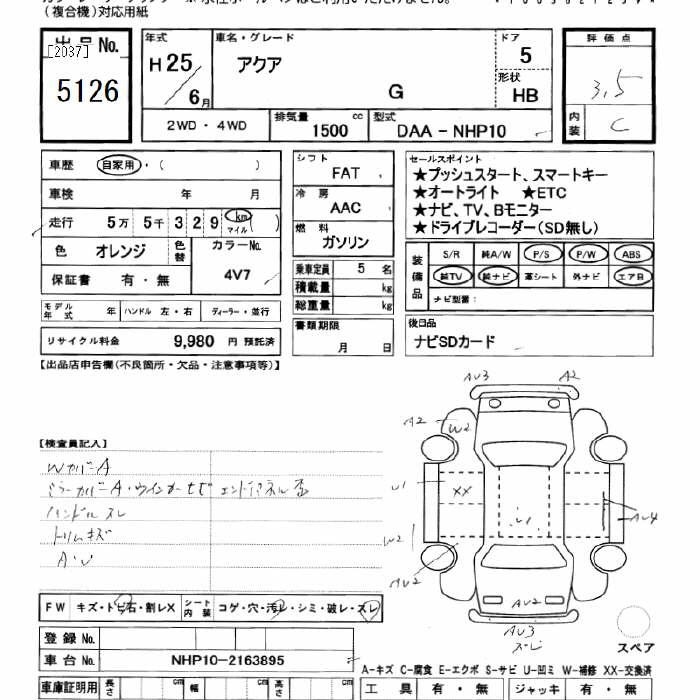 (複合機)対応用紙
出品No.
[2037]
5126
年式
H25
6月
車名・グレード
アクア
G
ドア
5
形状
HB
評価点
3.5
内装
C
2WD・4WD
排気量
1500 cc
型式
DAA-NHP10
車歴 自家用・( )
車検 年 月
走行 5万 5千 3 2 9 km マイル ( )
色 オレンジ
色替
カラーNo.
4V7
保証書 有・無
モデル年式 年 ハンドル 左・右 ディーラー・並行
リサイクル料金 9,980 円 預託済
シフト
FAT
冷房
AAC
燃料
ガソリン
乗車定員 5 名
積載量 kg
総重量 kg
書類期限
月 日
セールスポイント
★プッシュスタート、スマートキー
★オートライト ★ETC
★ナビ、TV、Bモニター
★ドライブレコーダー(SD無し)
装備品
S/R 純A/W P/S P/W ABS
純TV 純ナビ 革シート 外ナビ エアB
ナビ型番:
後日品
ナビSDカード
【出品店申告欄(不良箇所・欠品・注意事項等)】
【検査員記入】
Wカバ-A
ミラーカバーA・ウインカーヒビ
ハンドルスレ
トリムキズ
A・U
AU3 A2
A2 W2
U1 XX
U1
AU4
W2
AU2
AU2
AU3
スペア
FW キズ・トビ石・割レX シート内装 コゲ・穴・汚レ・シミ・破レ・スレ
登録No.
車台No. NHP10-2163895
A-キズ C-腐食 E-エクボ S-サビ U-凹ミ W-補修 XX-交換済
車庫証明用 長さ cm 幅 cm 高さ cm
工具 有・無 ジャッキ 有・無